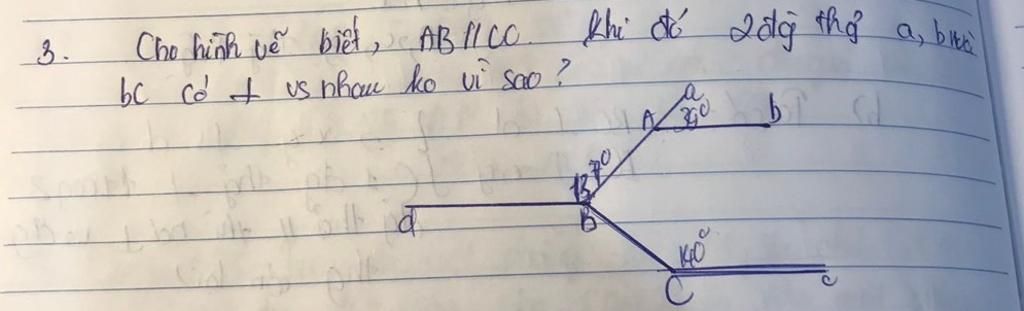 3. Cho hình vẽ biết, AB // CC. Khi đó 2 đg thg a, b và
bc có ⊥ vs nhau ko vì sao?
a
A 35° b
137°
d B
140°
C c